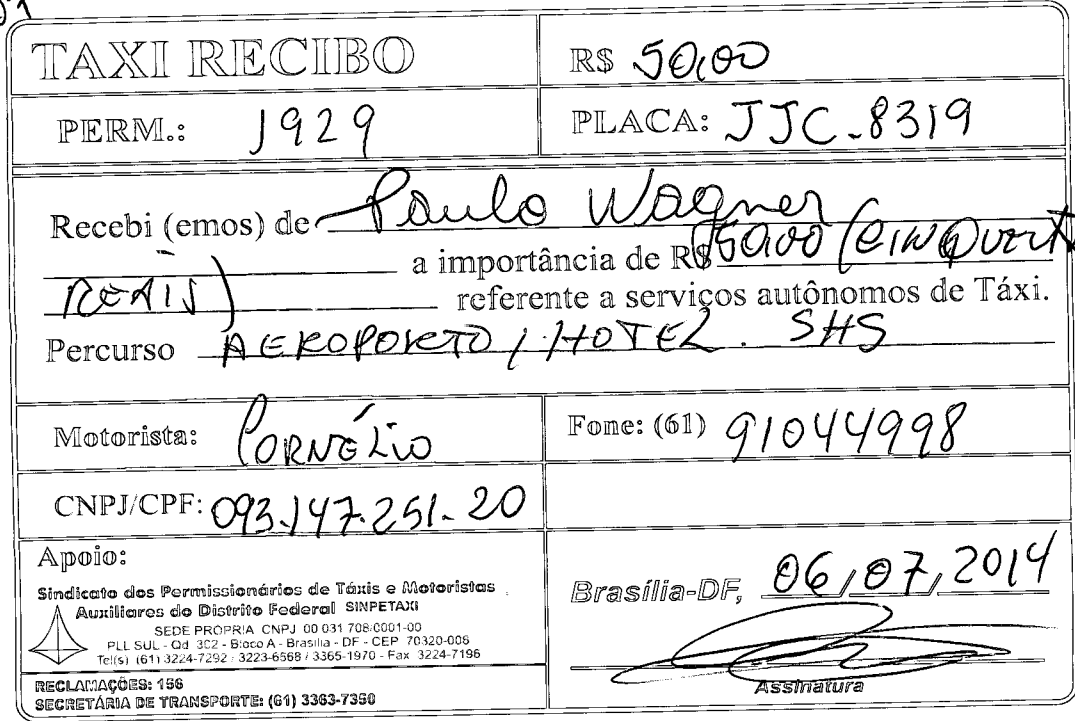 TAXI RECIBO
R$ 50,00
PERM.: 1929
PLACA: JJC-8319
Recebi (emos) de Paulo Wagner
a importância de R$ 50,00 (CINQUENTA
REAIS) referente a serviços autônomos de Táxi.
Percurso AEROPORTO / HOTEL. SHS
Motorista: CORNÉLIO
Fone: (61) 91044998
CNPJ/CPF: 093.147.251-20
Apoio:
Sindicato dos Permissionários de Táxis e Motoristas
Auxiliares do Distrito Federal SINPETAXI
SEDE PROPRIA CNPJ 00 031 708/0001-00
PLL SUL - Qd 302 - Bloco A - Brasília - DF - CEP 70320-006
Tel(s) (61) 3224-7292 / 3223-6568 / 3365-1970 - Fax 3224-7196
RECLAMAÇÕES: 156
SECRETÁRIA DE TRANSPORTE: (61) 3363-7350
Brasília-DF, 06/07/2014
Assinatura